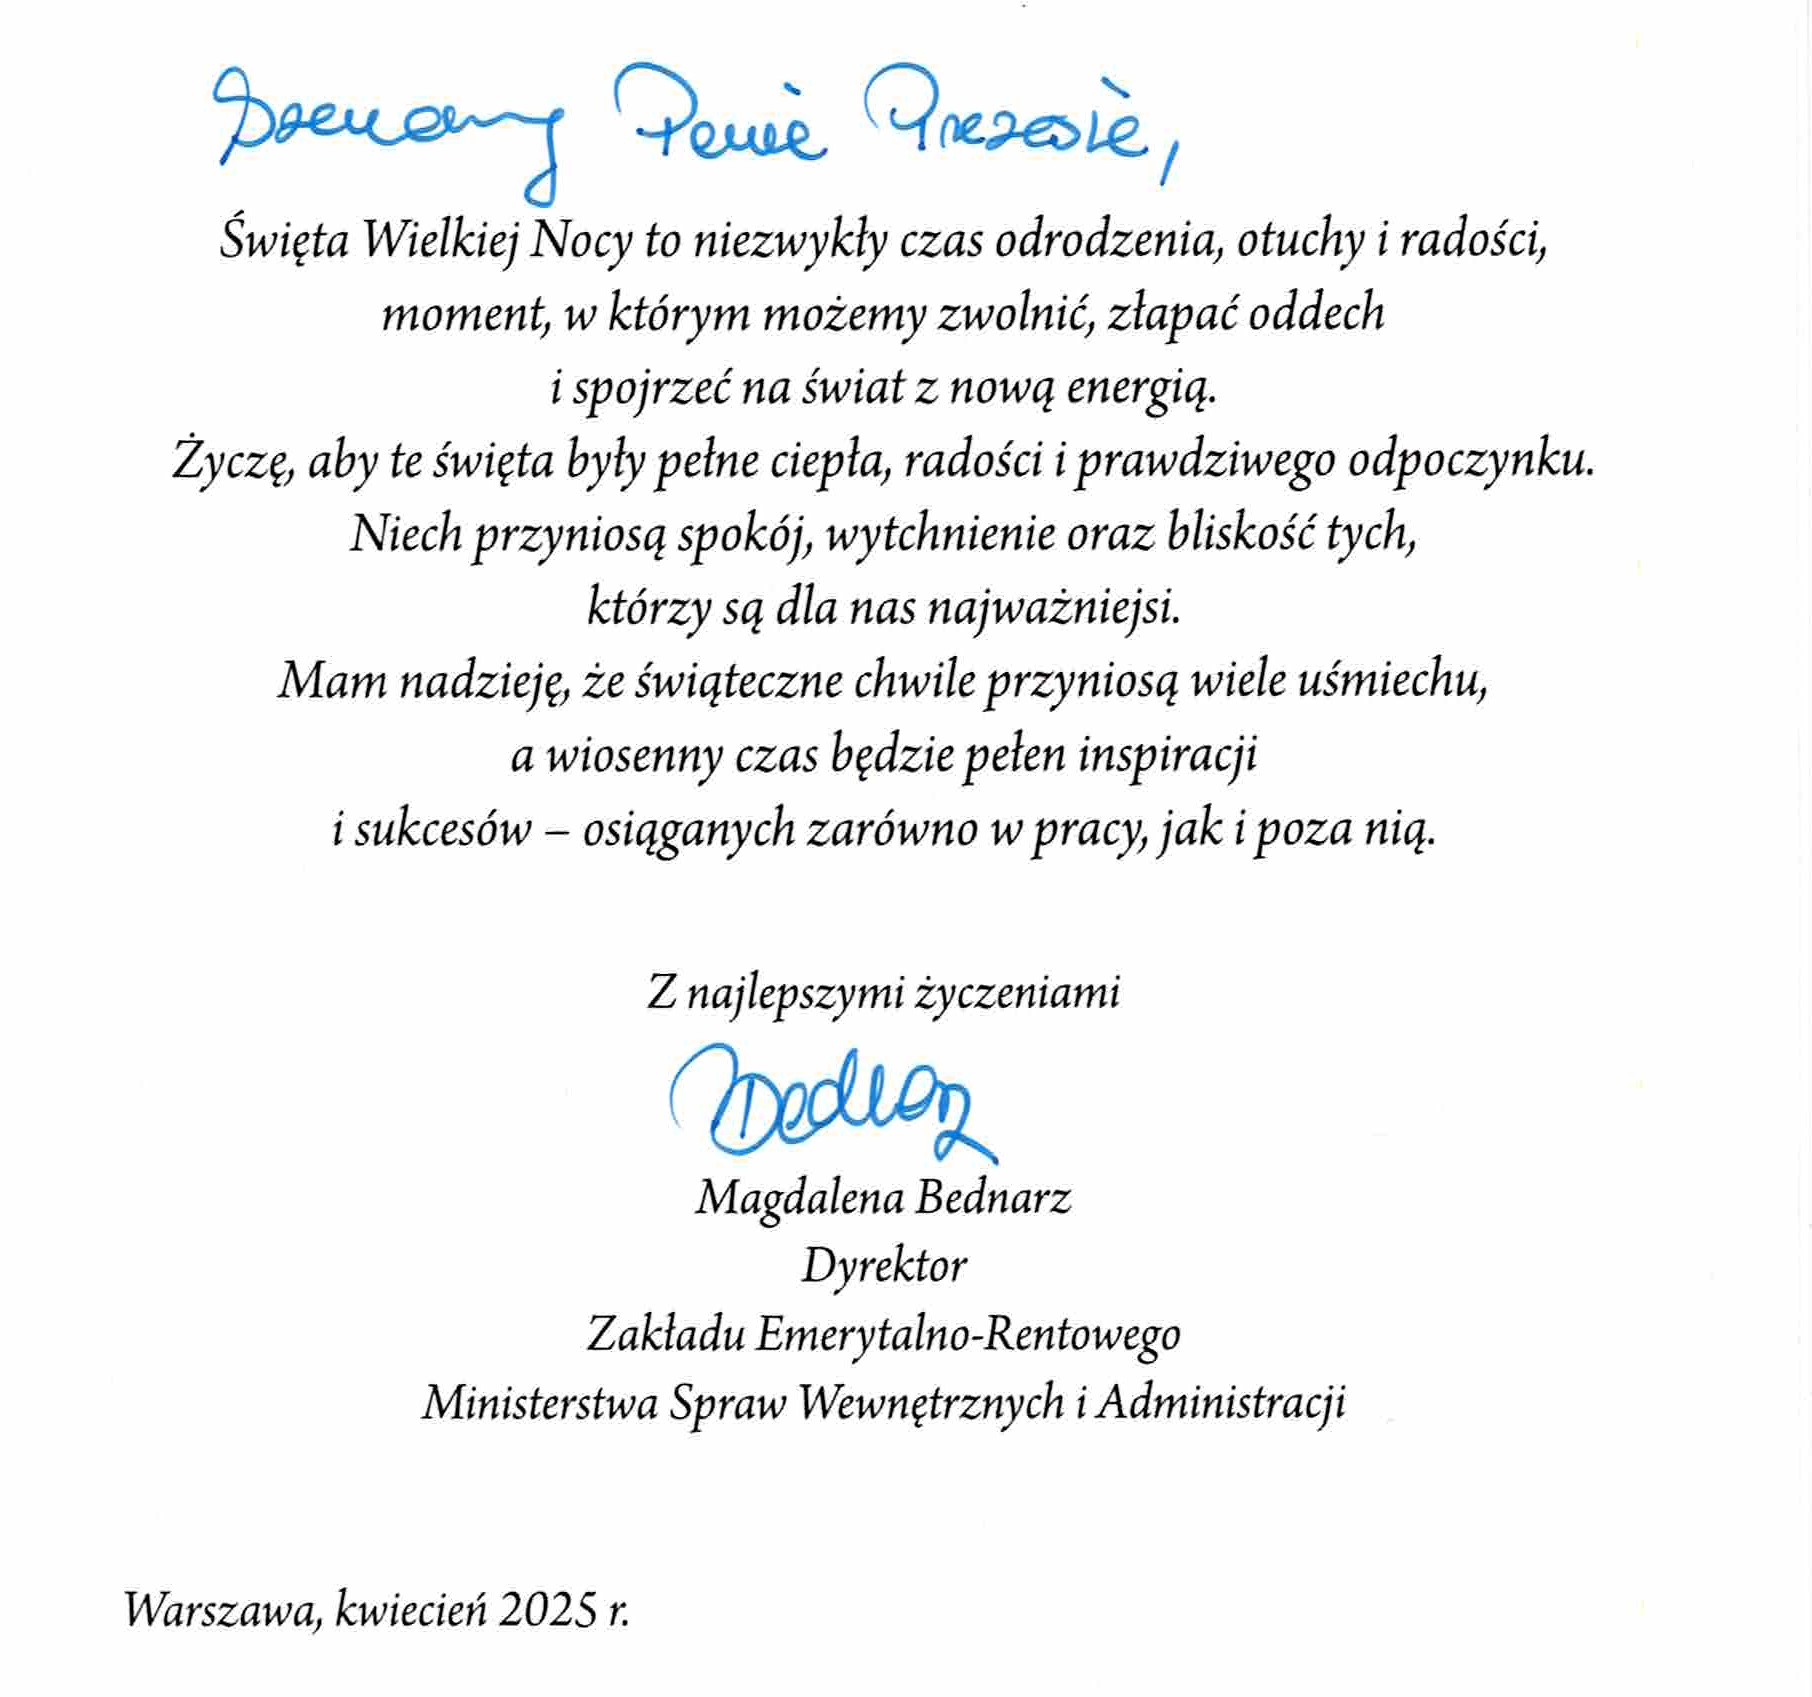 Szanowny Panie Prezesie,
Święta Wielkiej Nocy to niezwykły czas odrodzenia, otuchy i radości,
moment, w którym możemy zwolnić, złapać oddech
i spojrzeć na świat z nową energią.
Życzę, aby te święta były pełne ciepła, radości i prawdziwego odpoczynku.
Niech przyniosą spokój, wytchnienie oraz bliskość tych,
którzy są dla nas najważniejsi.
Mam nadzieję, że świąteczne chwile przyniosą wiele uśmiechu,
a wiosenny czas będzie pełen inspiracji
i sukcesów – osiąganych zarówno w pracy, jak i poza nią.
Z najlepszymi życzeniami
Bednarz
Magdalena Bednarz
Dyrektor
Zakładu Emerytalno-Rentowego
Ministerstwa Spraw Wewnętrznych i Administracji
Warszawa, kwiecień 2025 r.